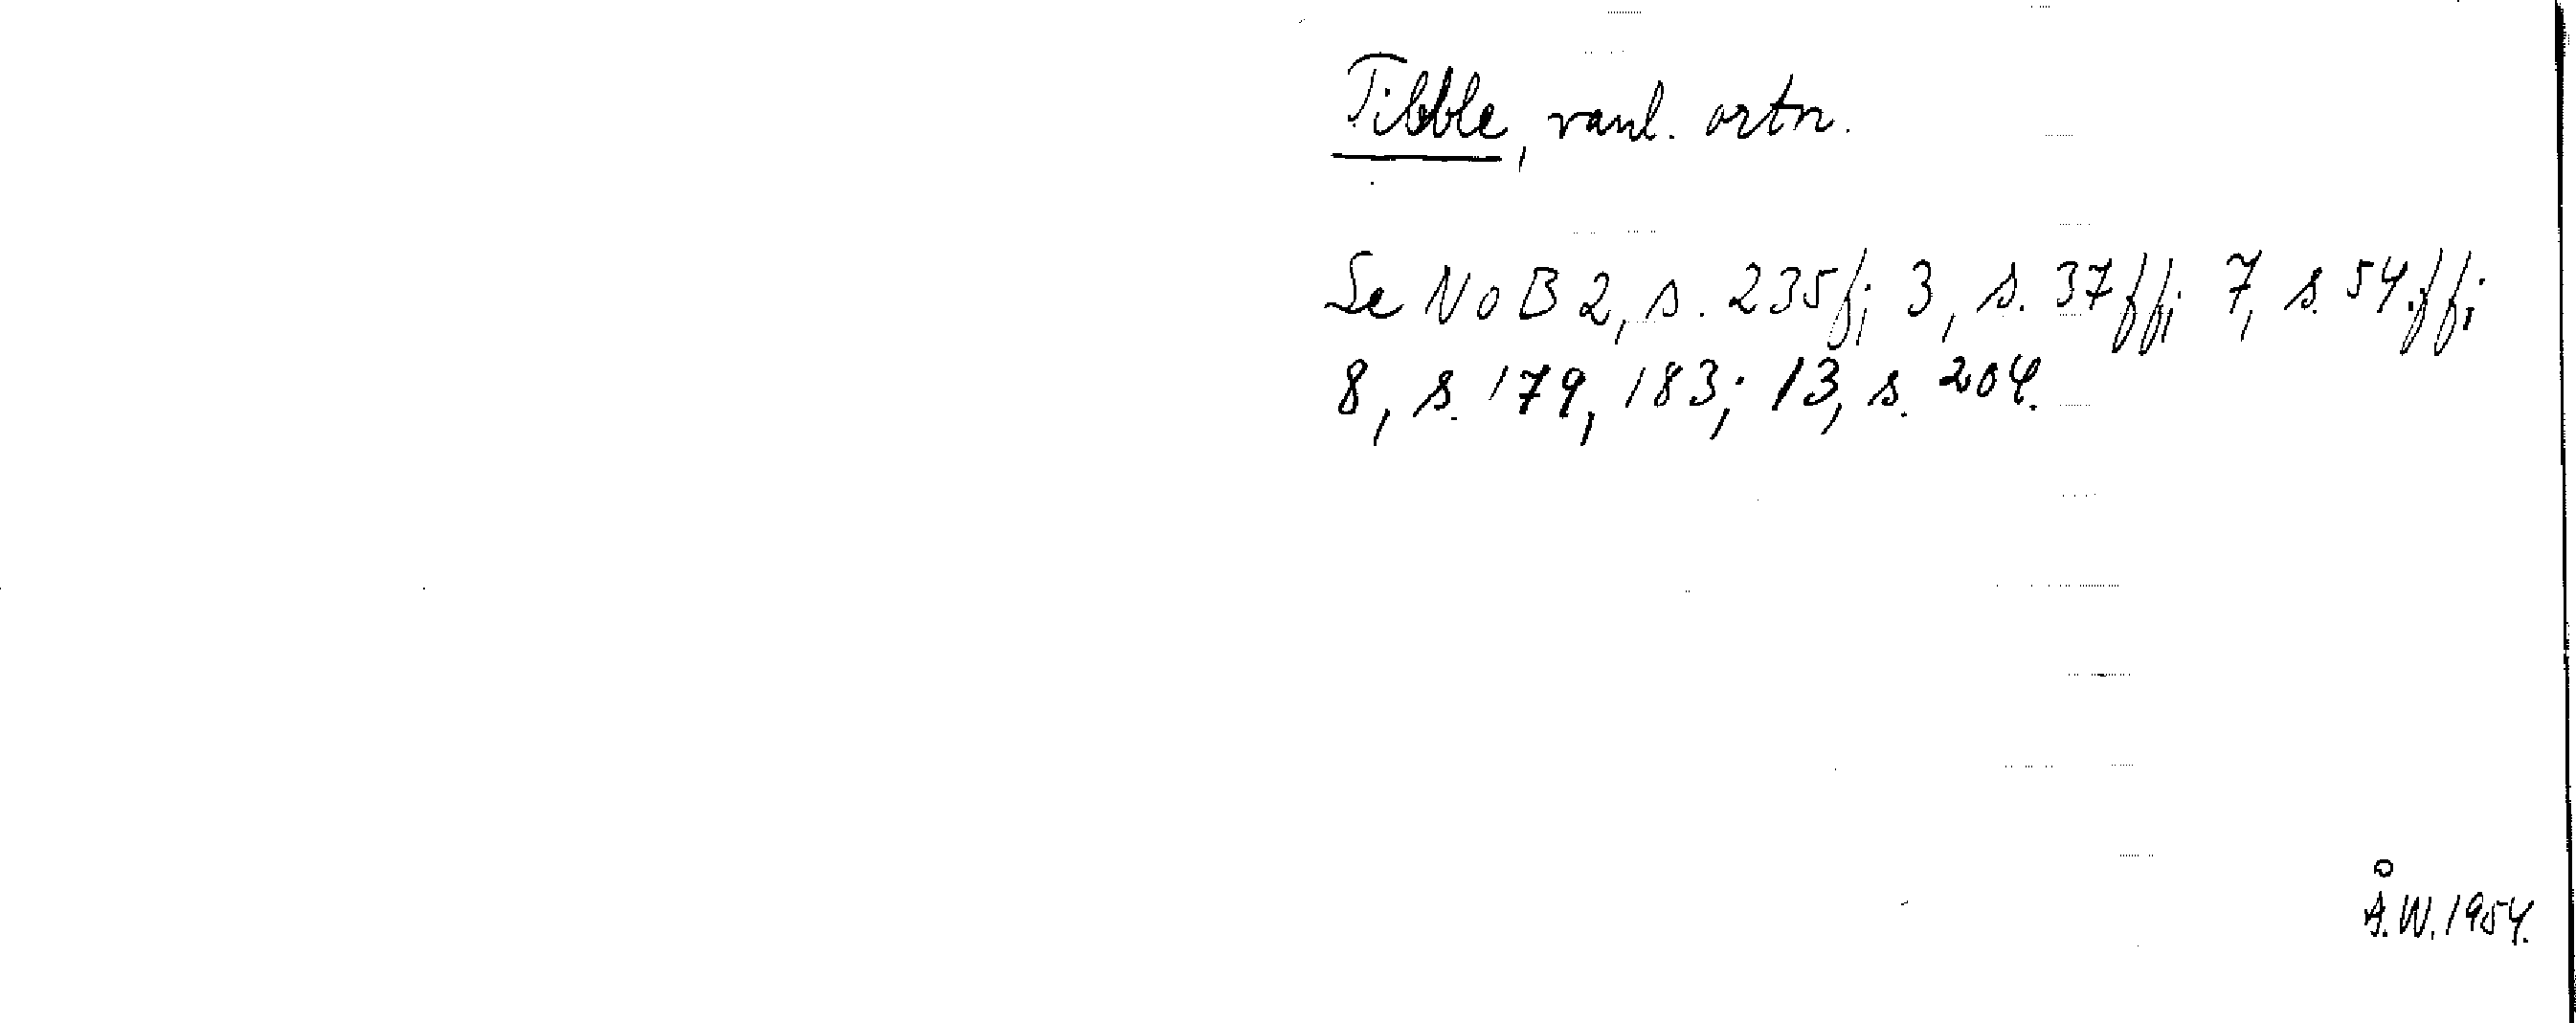 Tibble, vanl. ortn.
Se NoB 2, s. 235f; 3, s. 37ff; 7, s. 54.ff;
8, s. 179, 183; 13, s. 204.
Å.W. 1954.